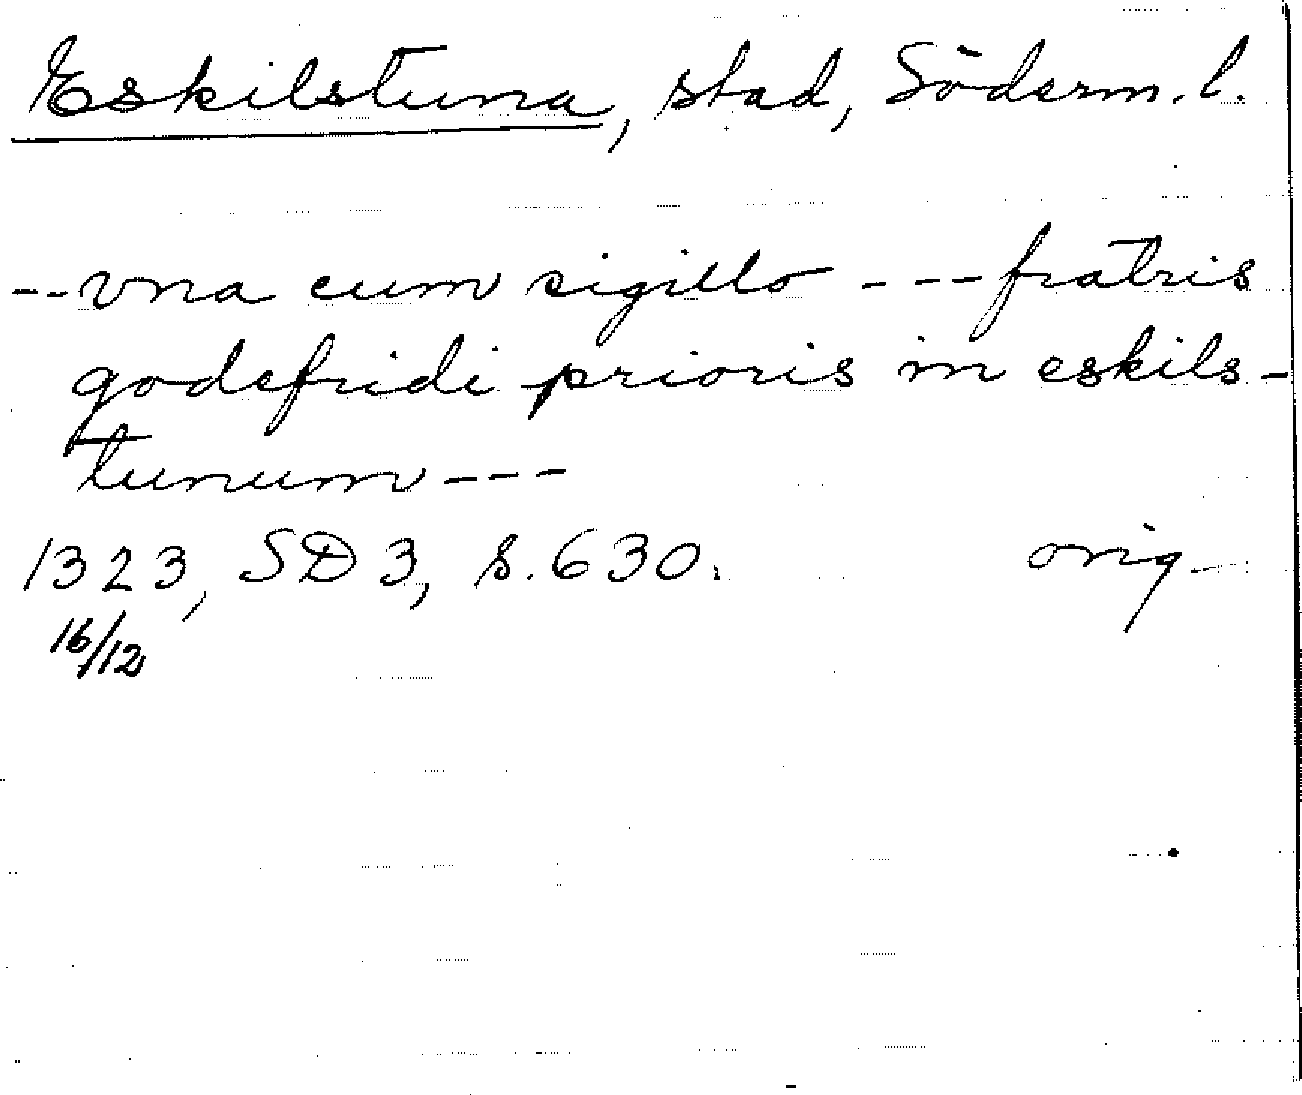 Eskilstuna, stad, Söderm. l.
--vna cum sigillo ---fratris
godefridi prioris in eskils-
tunum---
1323, SD 3, s. 630. orig
16/12